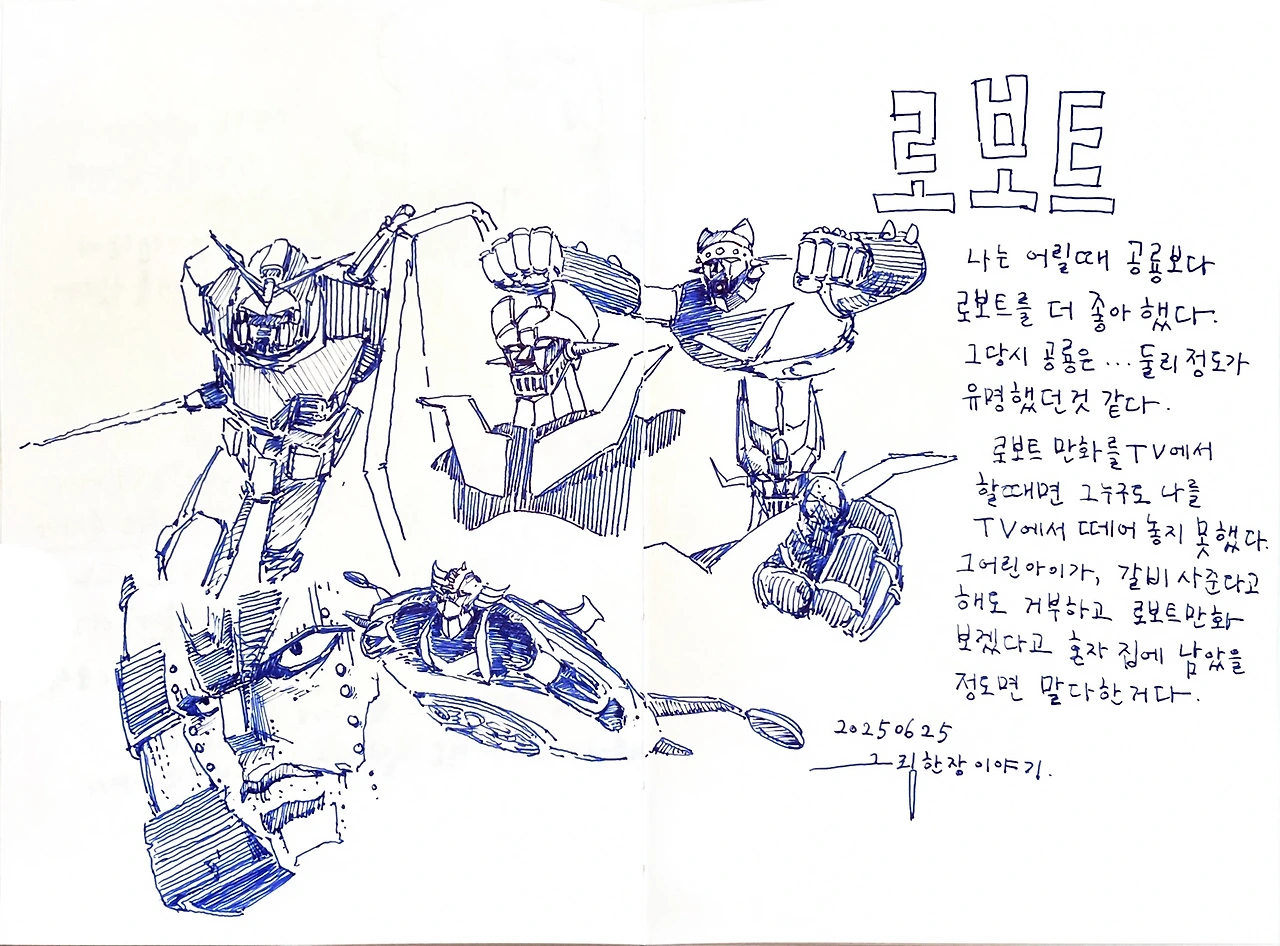 로보트
나는 어릴때 공룡보다
로보트를 더 좋아 했다.
그당시 공룡은 ... 둘리정도가
유명했던것 같다.
로보트 만화를 TV에서
할때면 그누구도 나를
TV에서 떼어 놓지 못했다.
그어린아이가, 갈비 사준다고
해도 거부하고 로보트만화
보겠다고 혼자 집에 남았을
정도면 말다한거다.
20250625
그림한장이야기.